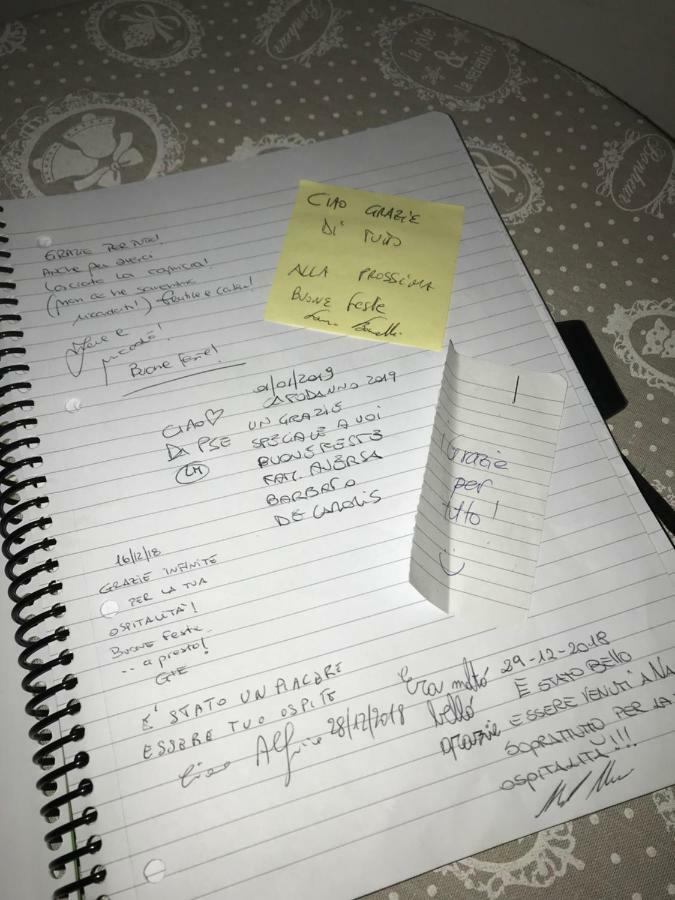 Bonheur
la joie
&
la sérénité
Bonheur
GRAZIE PER TUTTO!
ANCHE PER AVERCI
LASCIATO LA
(NON CE NE SARANNO
Buone Feste!
CIAO GRAZIE
DI TUTTO
ALLA PROSSIMA
BUONE Feste
01/01/2019
CAPODANNO 2019
CIAO♡ UN GRAZIE
DA PSE SPECIALE A VOI
LM BUONE FESTE
FAM. AVERSA
BARBATO
DE
Grazie
per
tutto!
16/12/18
GRAZIE INFINITE
PER LA TUA
OSPITALITÀ!
BUONE Feste
-- a presto!
E' STATO UN PIACERE
ESSERE TUO OSPITE
Ciao 28/12/2018
Era molto
bello
grazie
29-12-2018
È STATO BELLO
ESSERE VENUTI A NA
SOPRATUTTO PER LA
OSPITALITÀ!!!